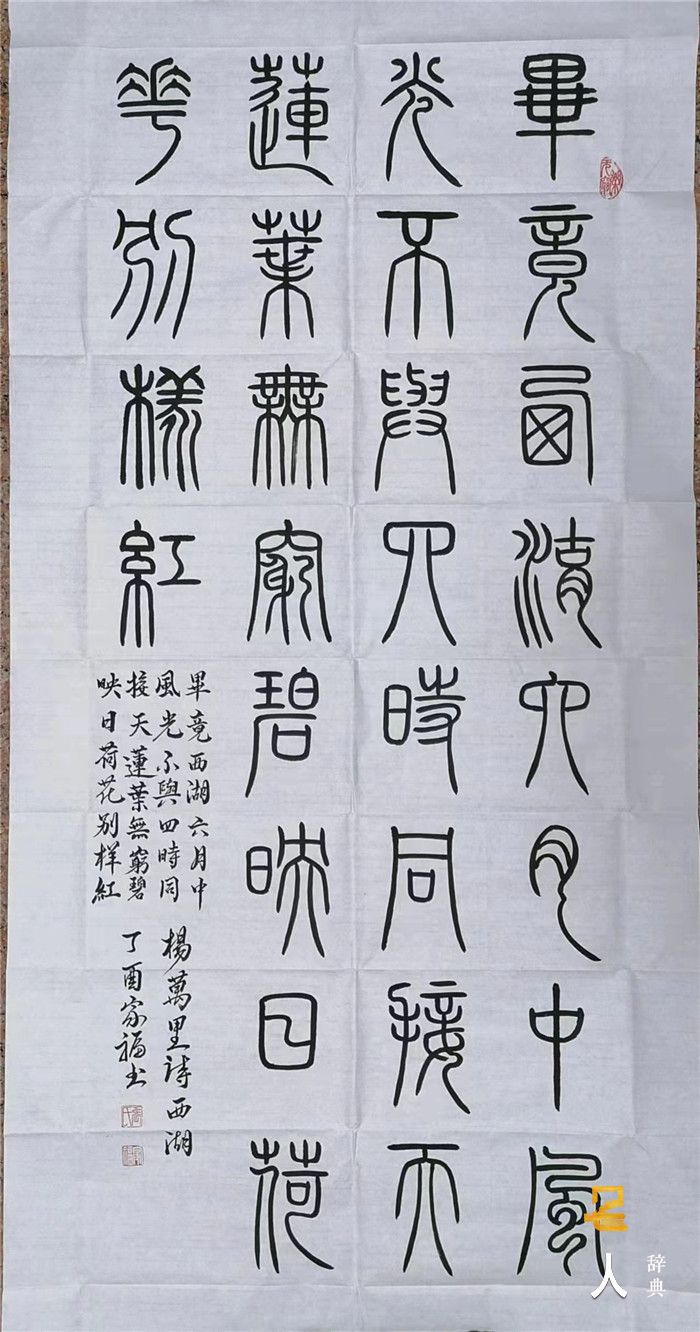 畢竟西湖六月中風
光不與四時同接天
蓮葉無窮碧映日荷
花別樣紅
畢竟西湖六月中
風光不與四時同
接天蓮葉無窮碧
映日荷花别样紅
楊萬里詩西湖
丁酉家福书
名人
辞典